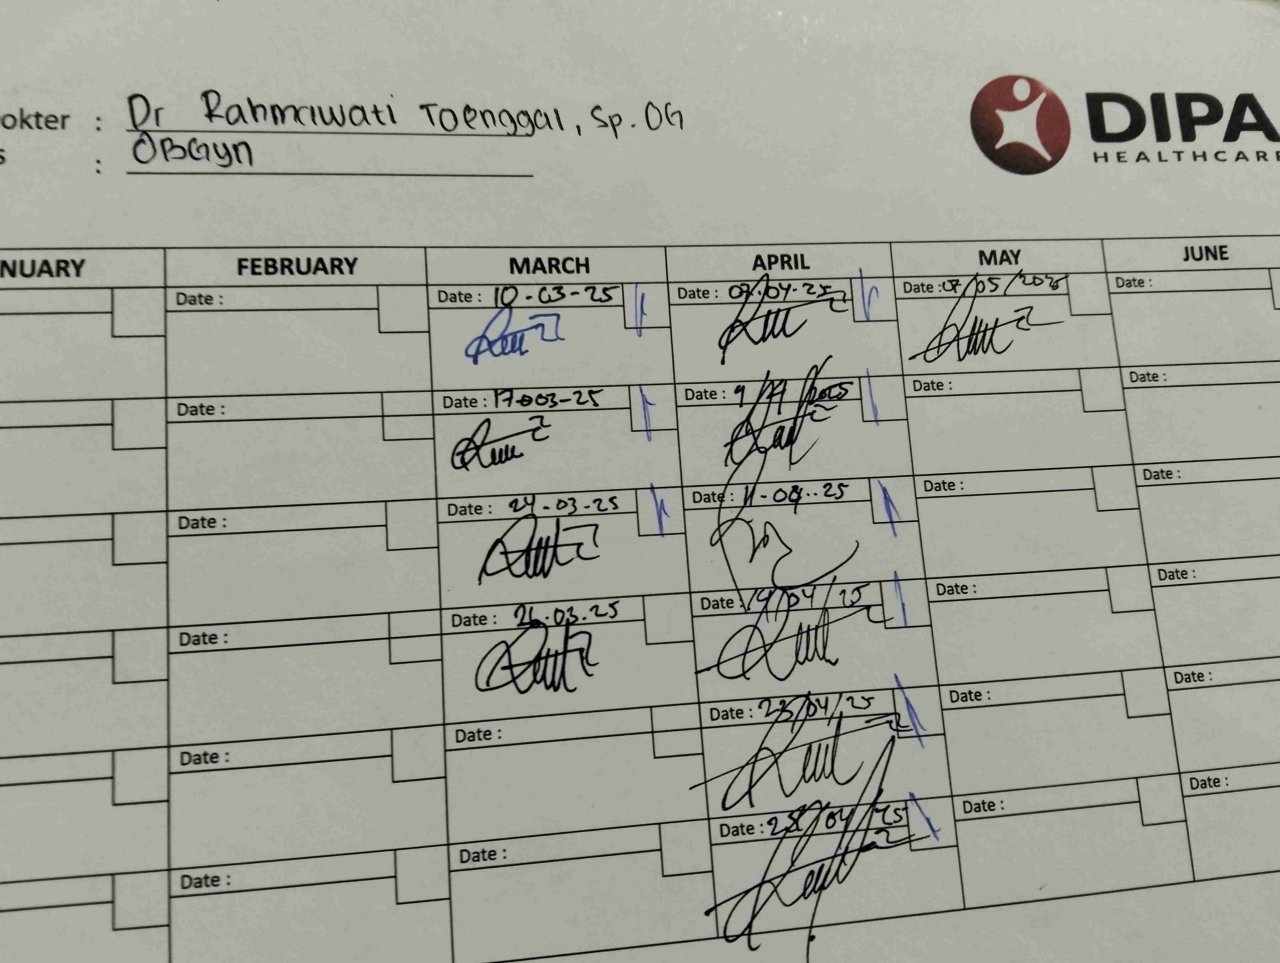 okter : Dr Rahmawati Toenggal, Sp.OG
s : OBGyn
DIPA
HEALTHCARE
NUARY FEBRUARY MARCH APRIL MAY JUNE
Date : Date : 10-03-25 Date : 07.04-25 Date : 07/05/2025 Date :
Date : Date : 17-03-25 Date : 9/ /2025 Date : Date :
Date : Date : 24-03-25 Date : 11-04-25 Date : Date :
Date : Date : 26.03.25 Date : 19/04/25 Date : Date :
Date : Date : Date : 23/04/25 Date : Date :
Date : Date : Date : 25/04/25 Date : Date :